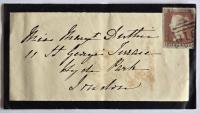 Miss Margt
11 St George Terrace
Hyde Park
London